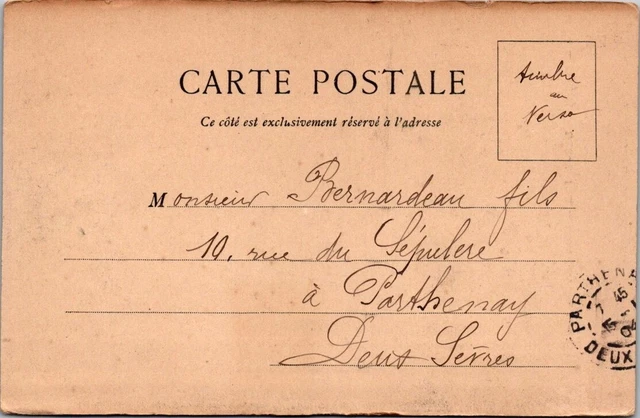 CARTE POSTALE
Ce côté est exclusivement réservé à l'adresse
timbre
au
Verso
Monsieur Bernardeau fils
10, rue du Sépulcre
à Parthenay
Deux Sèvres
PARTHENA
DEUX